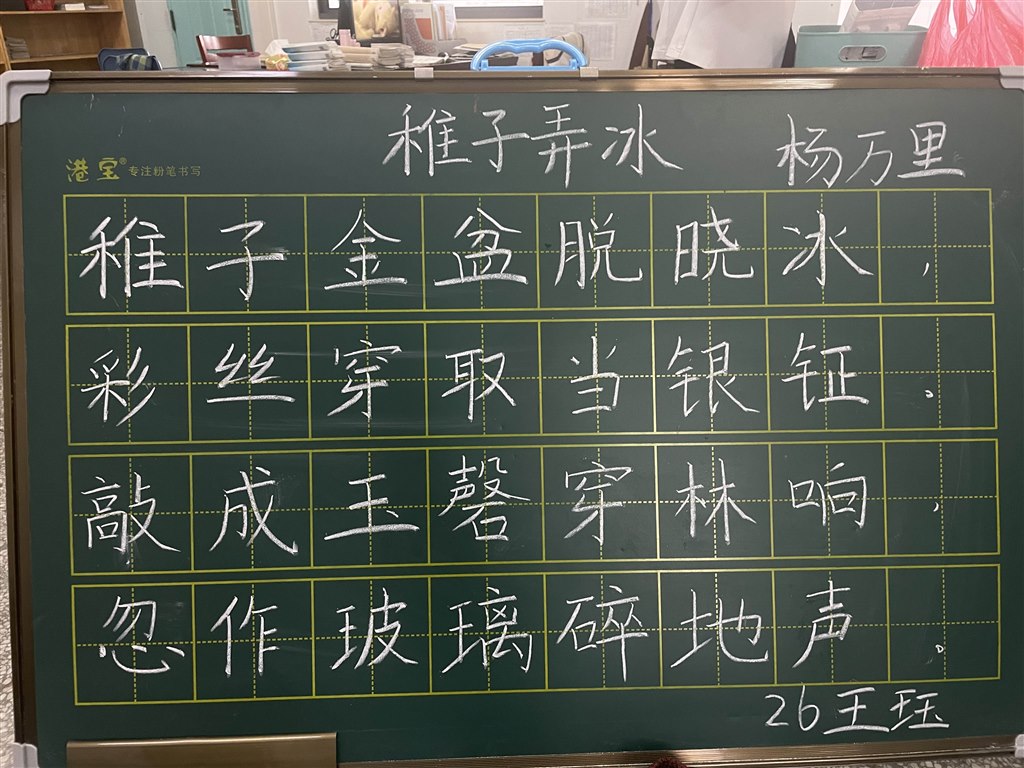 稚子弄冰 杨万里
港宝® 专注粉笔书写
稚子金盆脱晓冰，
彩丝穿取当银钲。
敲成玉磬穿林响，
忽作玻璃碎地声。
26王珏